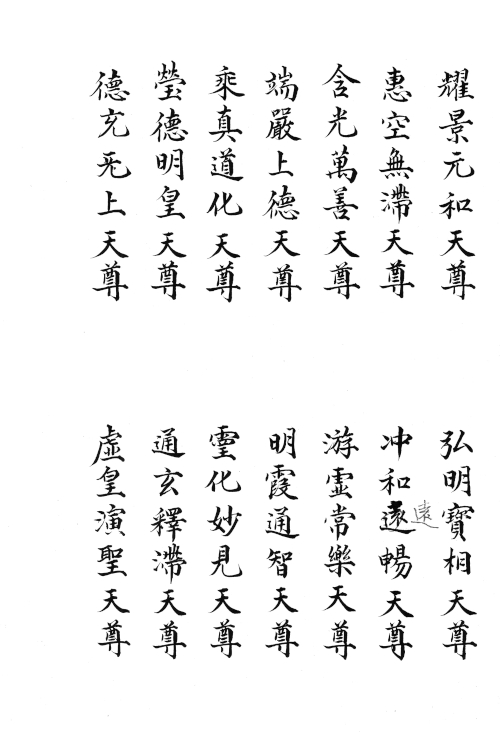 耀景元和天尊
弘明寶相天尊
惠空無滯天尊
冲和遠暢天尊
遠
含光萬善天尊
游虛常樂天尊
端嚴上德天尊
明霞通智天尊
乘真道化天尊
霊化妙見天尊
瑩德明皇天尊
通玄釋滯天尊
德充旡上天尊
虛皇演聖天尊